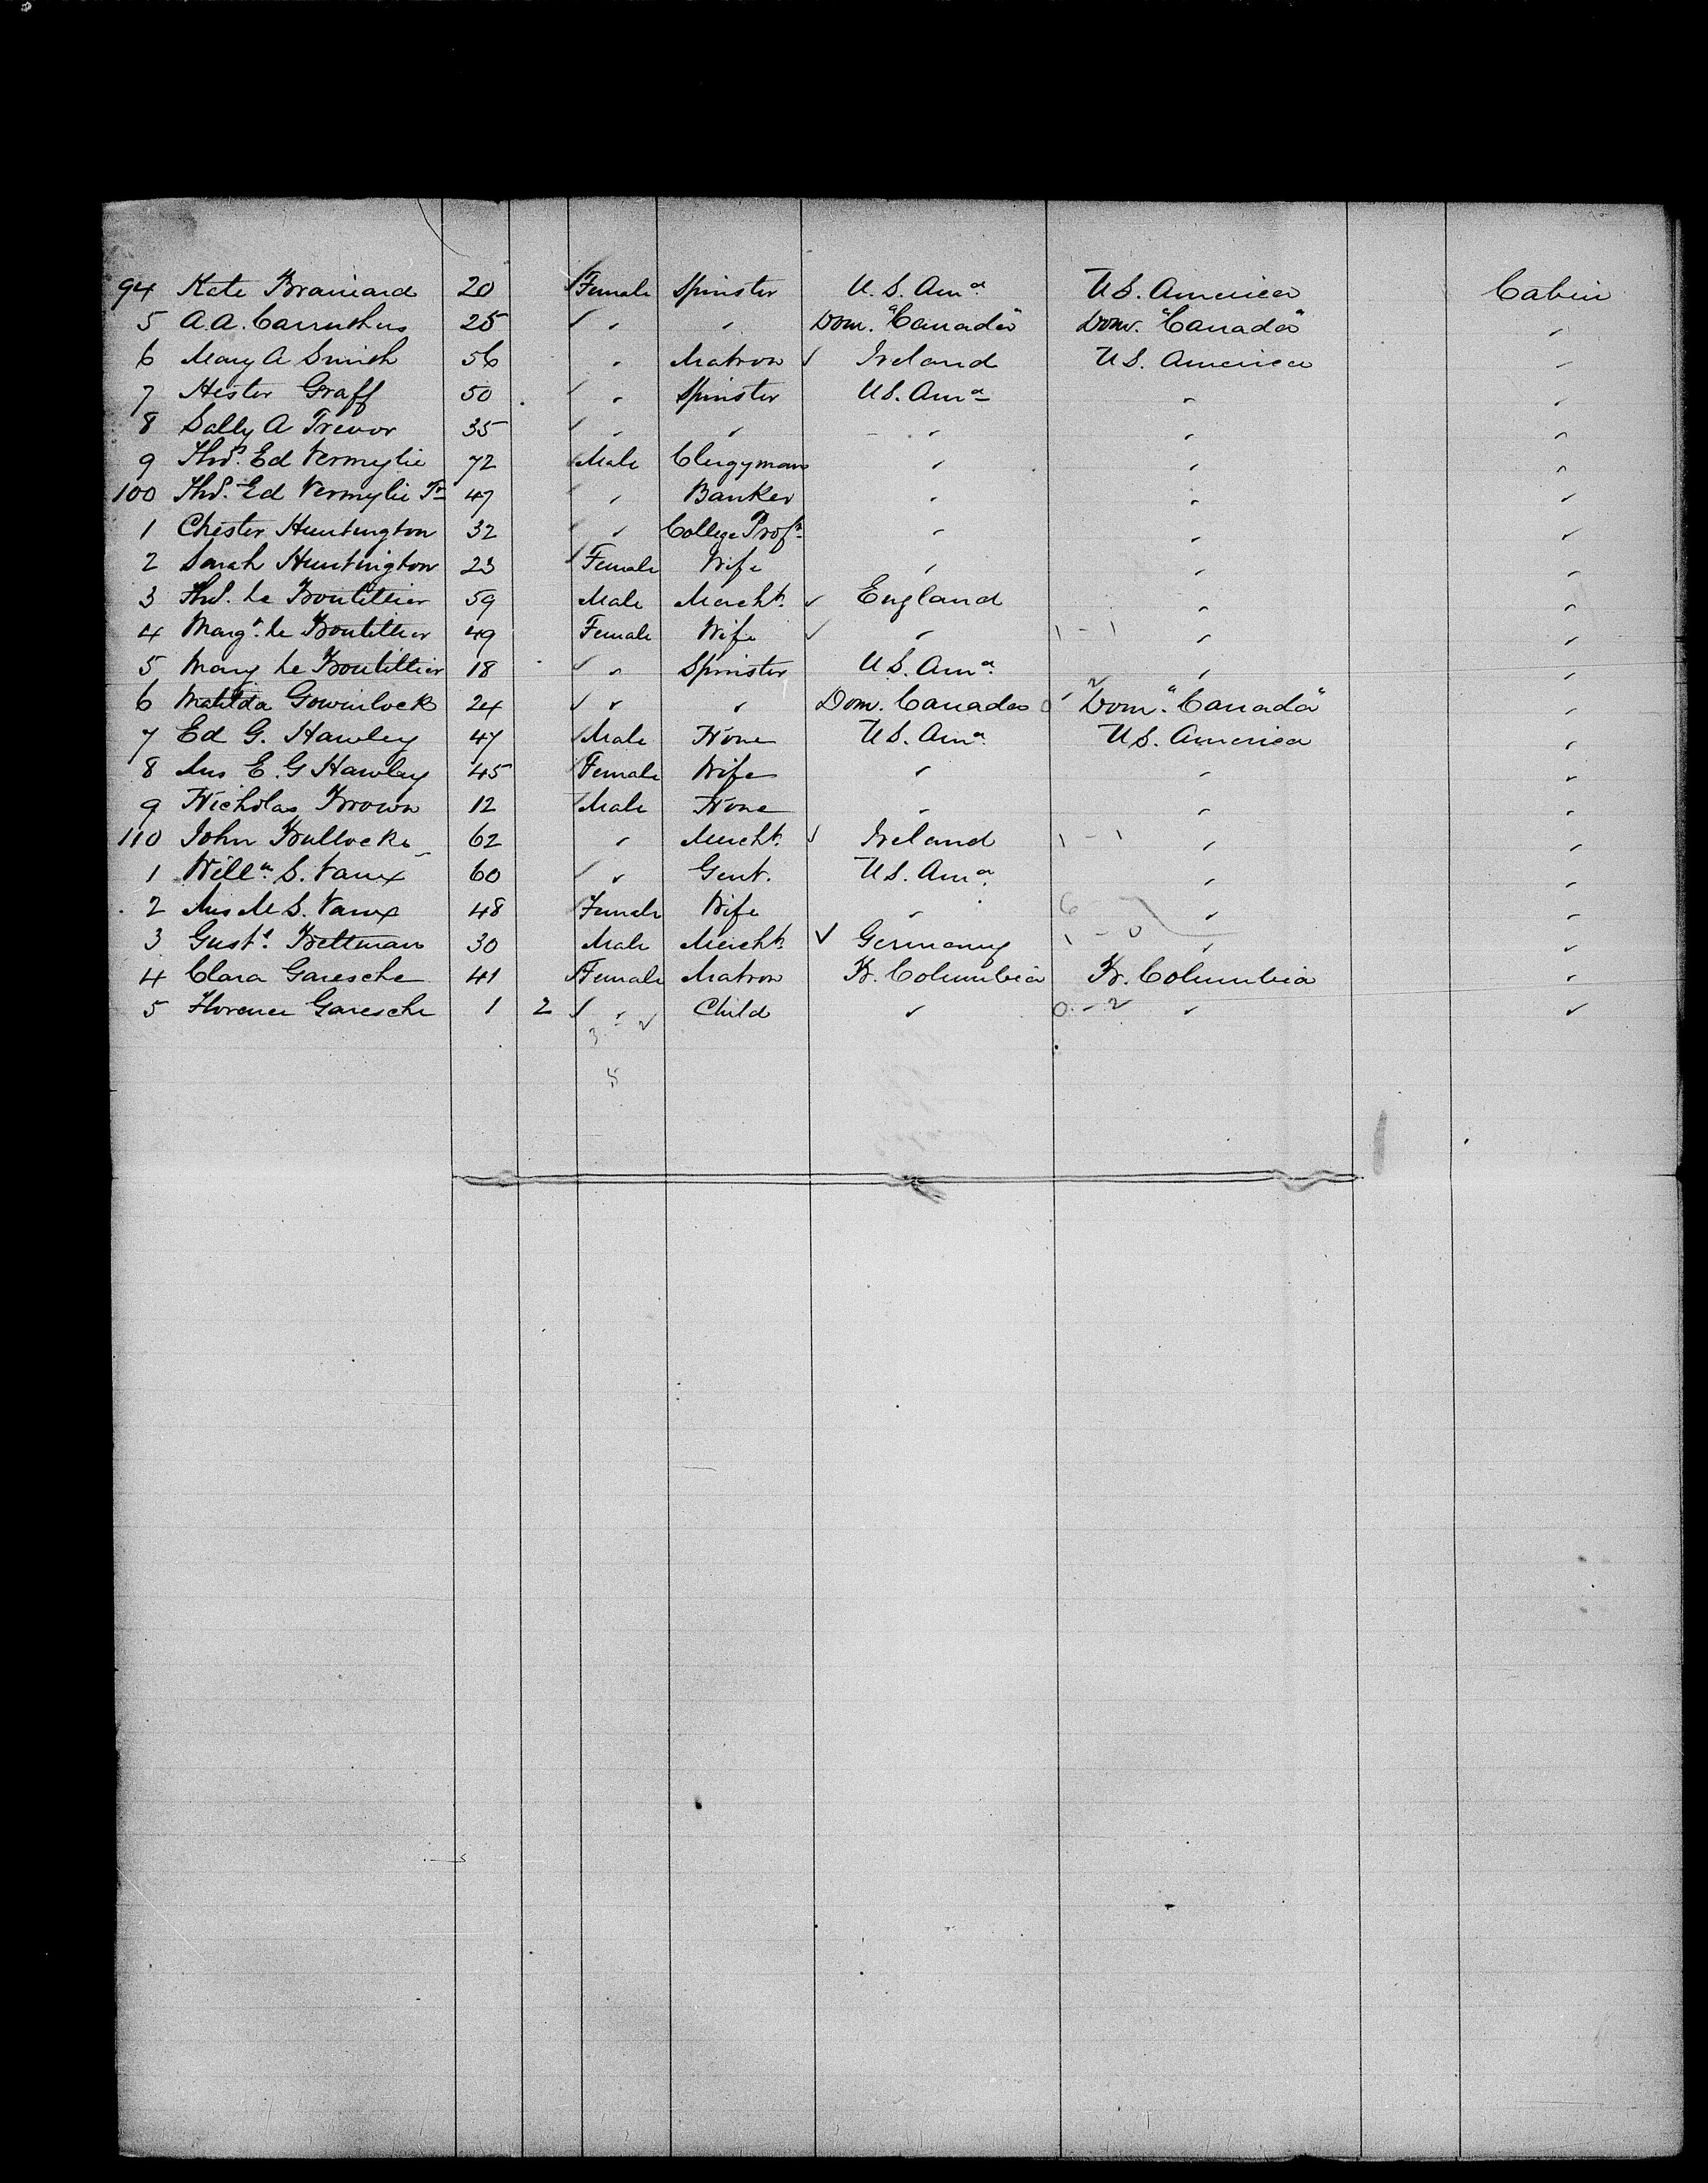 94 Kate Brainard 20 Female Spinster U.S. Ama U.S. America Cabin
5 A.A. Carruthers 25 " " Dom. "Canada" Dom. "Canada" "
6 Mary A Smith 56 " Matron Ireland U.S. America "
7 Hester Graff 50 " Spinster U.S. Ama " "
8 Sally A Trevor 35 " " " " "
9 Thos. Ed Vermylie 72 Male Clergyman " " "
100 Thd. Ed Vermylie Jr 47 " Banker " " "
1 Chester Huntington 32 " College Profr " " "
2 Sarah Huntington 23 Female Wife " " "
3 Thd. Le Boutillier 59 Male Mercht. England " "
4 Margt. Le Boutillier 49 Female Wife " 1 - 1 " "
5 Mary Le Boutillier 18 " Spinster U.S. Ama " "
6 Matilda Gowinlock 24 " " Dom. Canada Dom. "Canada" "
7 Ed G. Hawley 47 Male None U.S. Ama U.S. America "
8 Mrs E. G Hawley 45 Female Wife " " "
9 Nicholas Brown 12 Male None " " "
110 John Bullocke 62 " Mercht. Ireland 1 - 1 " "
1 Willm. S. Vaux 60 " Gent. U.S. Ama " "
2 Mrs M S. Vaux 48 Female Wife " 6 " "
3 Gustt. Beltman 30 Male Mercht. Germany 1 - 0 " "
4 Clara Garesche 41 Female Matron Br. Columbia Br. Columbia "
5 Florence Garesche 1 2 " Child " 0 - 2 " "
3 - 2
5